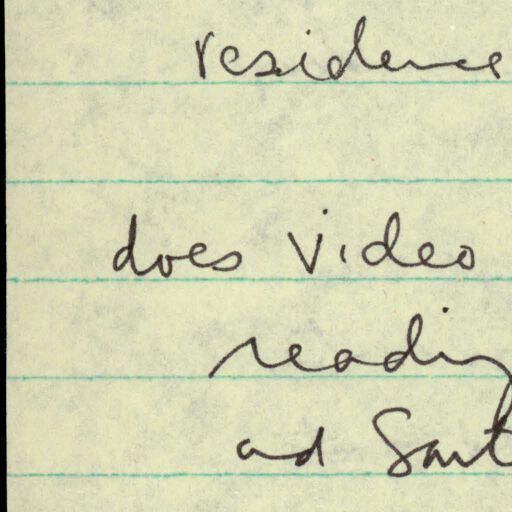 residence
does Video
reading
and Sant